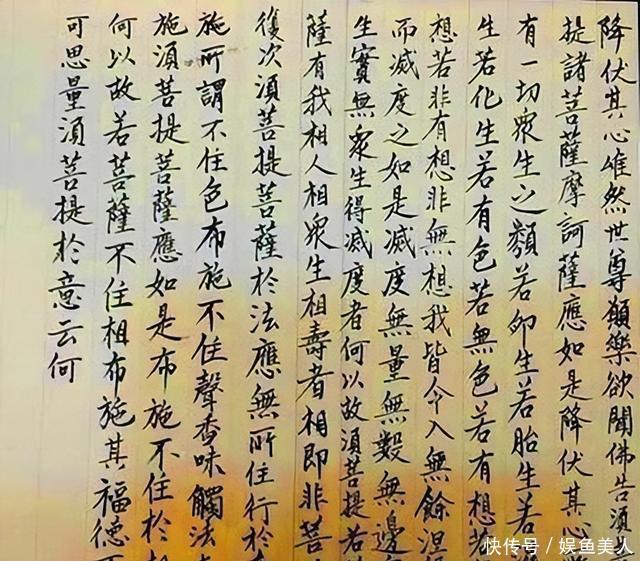 降伏其心唯然世尊願樂欲聞佛告須
提諸菩薩摩訶薩應如是降伏其心
有一切眾生之類若卵生若胎生若
生若化生若有色若無色若有想若
想若非有想非無想我皆令入無餘涅
而滅度之如是滅度無量無數無邊
生實無眾生得滅度者何以故須菩提若
薩有我相人相眾生相壽者相即非菩
復次須菩提菩薩於法應無所住行於
施所謂不住色布施不住聲香味觸法
施須菩提菩薩應如是布施不住於
何以故若菩薩不住相布施其福德
可思量須菩提於意云何
快传号/娱鱼美人